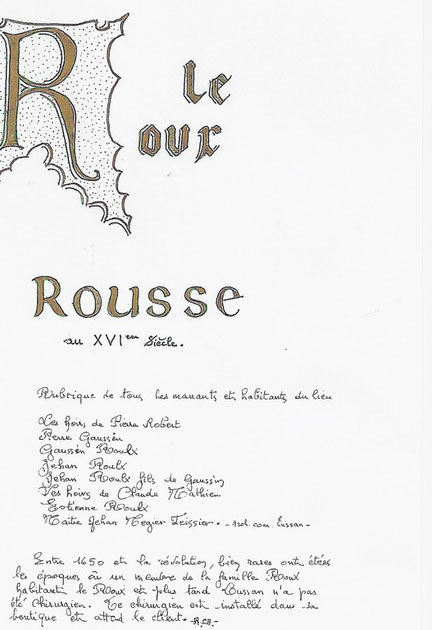 le
Roux
Rousse
au XVIem Siècle.
Rubrique de tous les manants et habitants du lieu
Les hoirs de Pierre Robert
Pierre Gaussen
Gaussen Roulx
Jehan Roulx
Jehan Roulx fils de Gaussin
Les hoirs de Claude Mathieu
Estienne Roulx
Maitre Jehan Megier Teissier. - Arch. com. Lussan -
Entre 1650 et la révolution, bien rares ont étées
les époques où un membre de la famille Roux
habitant le Roux et plus tard Lussan n'a pas
été chirurgien. Ce chirurgien est installé dans sa
boutique et attend le client.